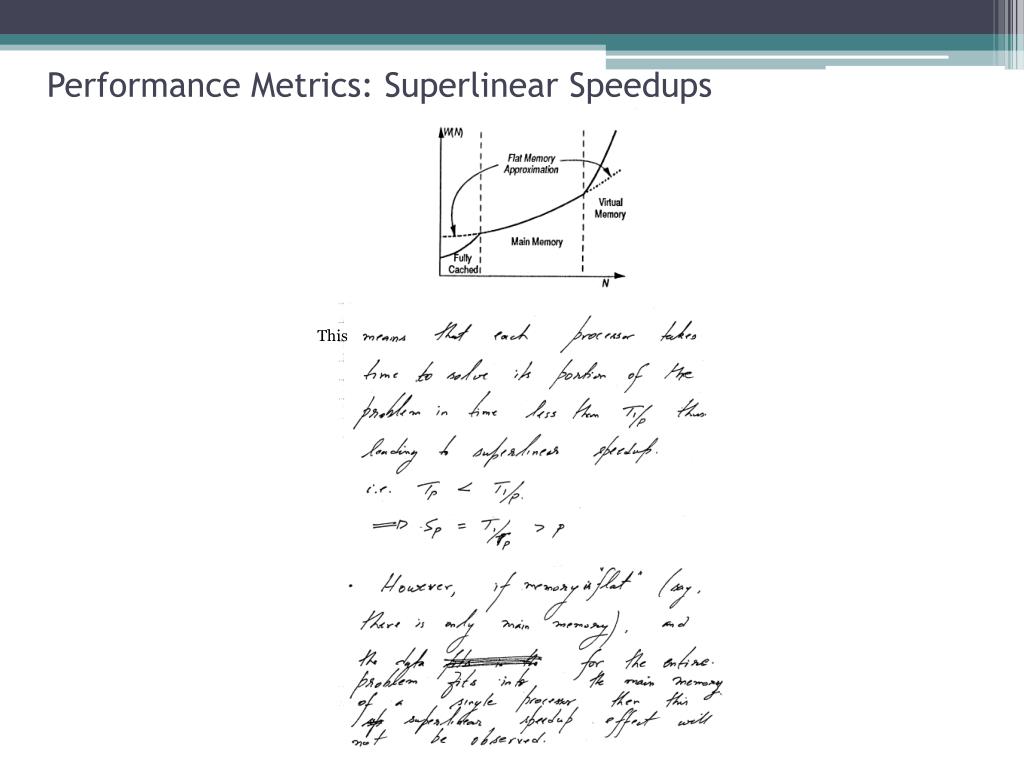 Performance Metrics: Superlinear Speedups
W(N)
Flat Memory
Approximation
Virtual
Memory
Main Memory
Fully
Cached
N
This means that each processor takes
time to solve its portion of the
problem in time less than T1/p thus
leading to superlinear speedup.
i.e. Tp < T1/p.
⇒ Sp = T1/Tp > p
· However, if memory is "flat" (say,
there is only main memory), and
the data for the entire
problem fits into the main memory
of a single processor then this
superlinear speedup effect will
not be observed.